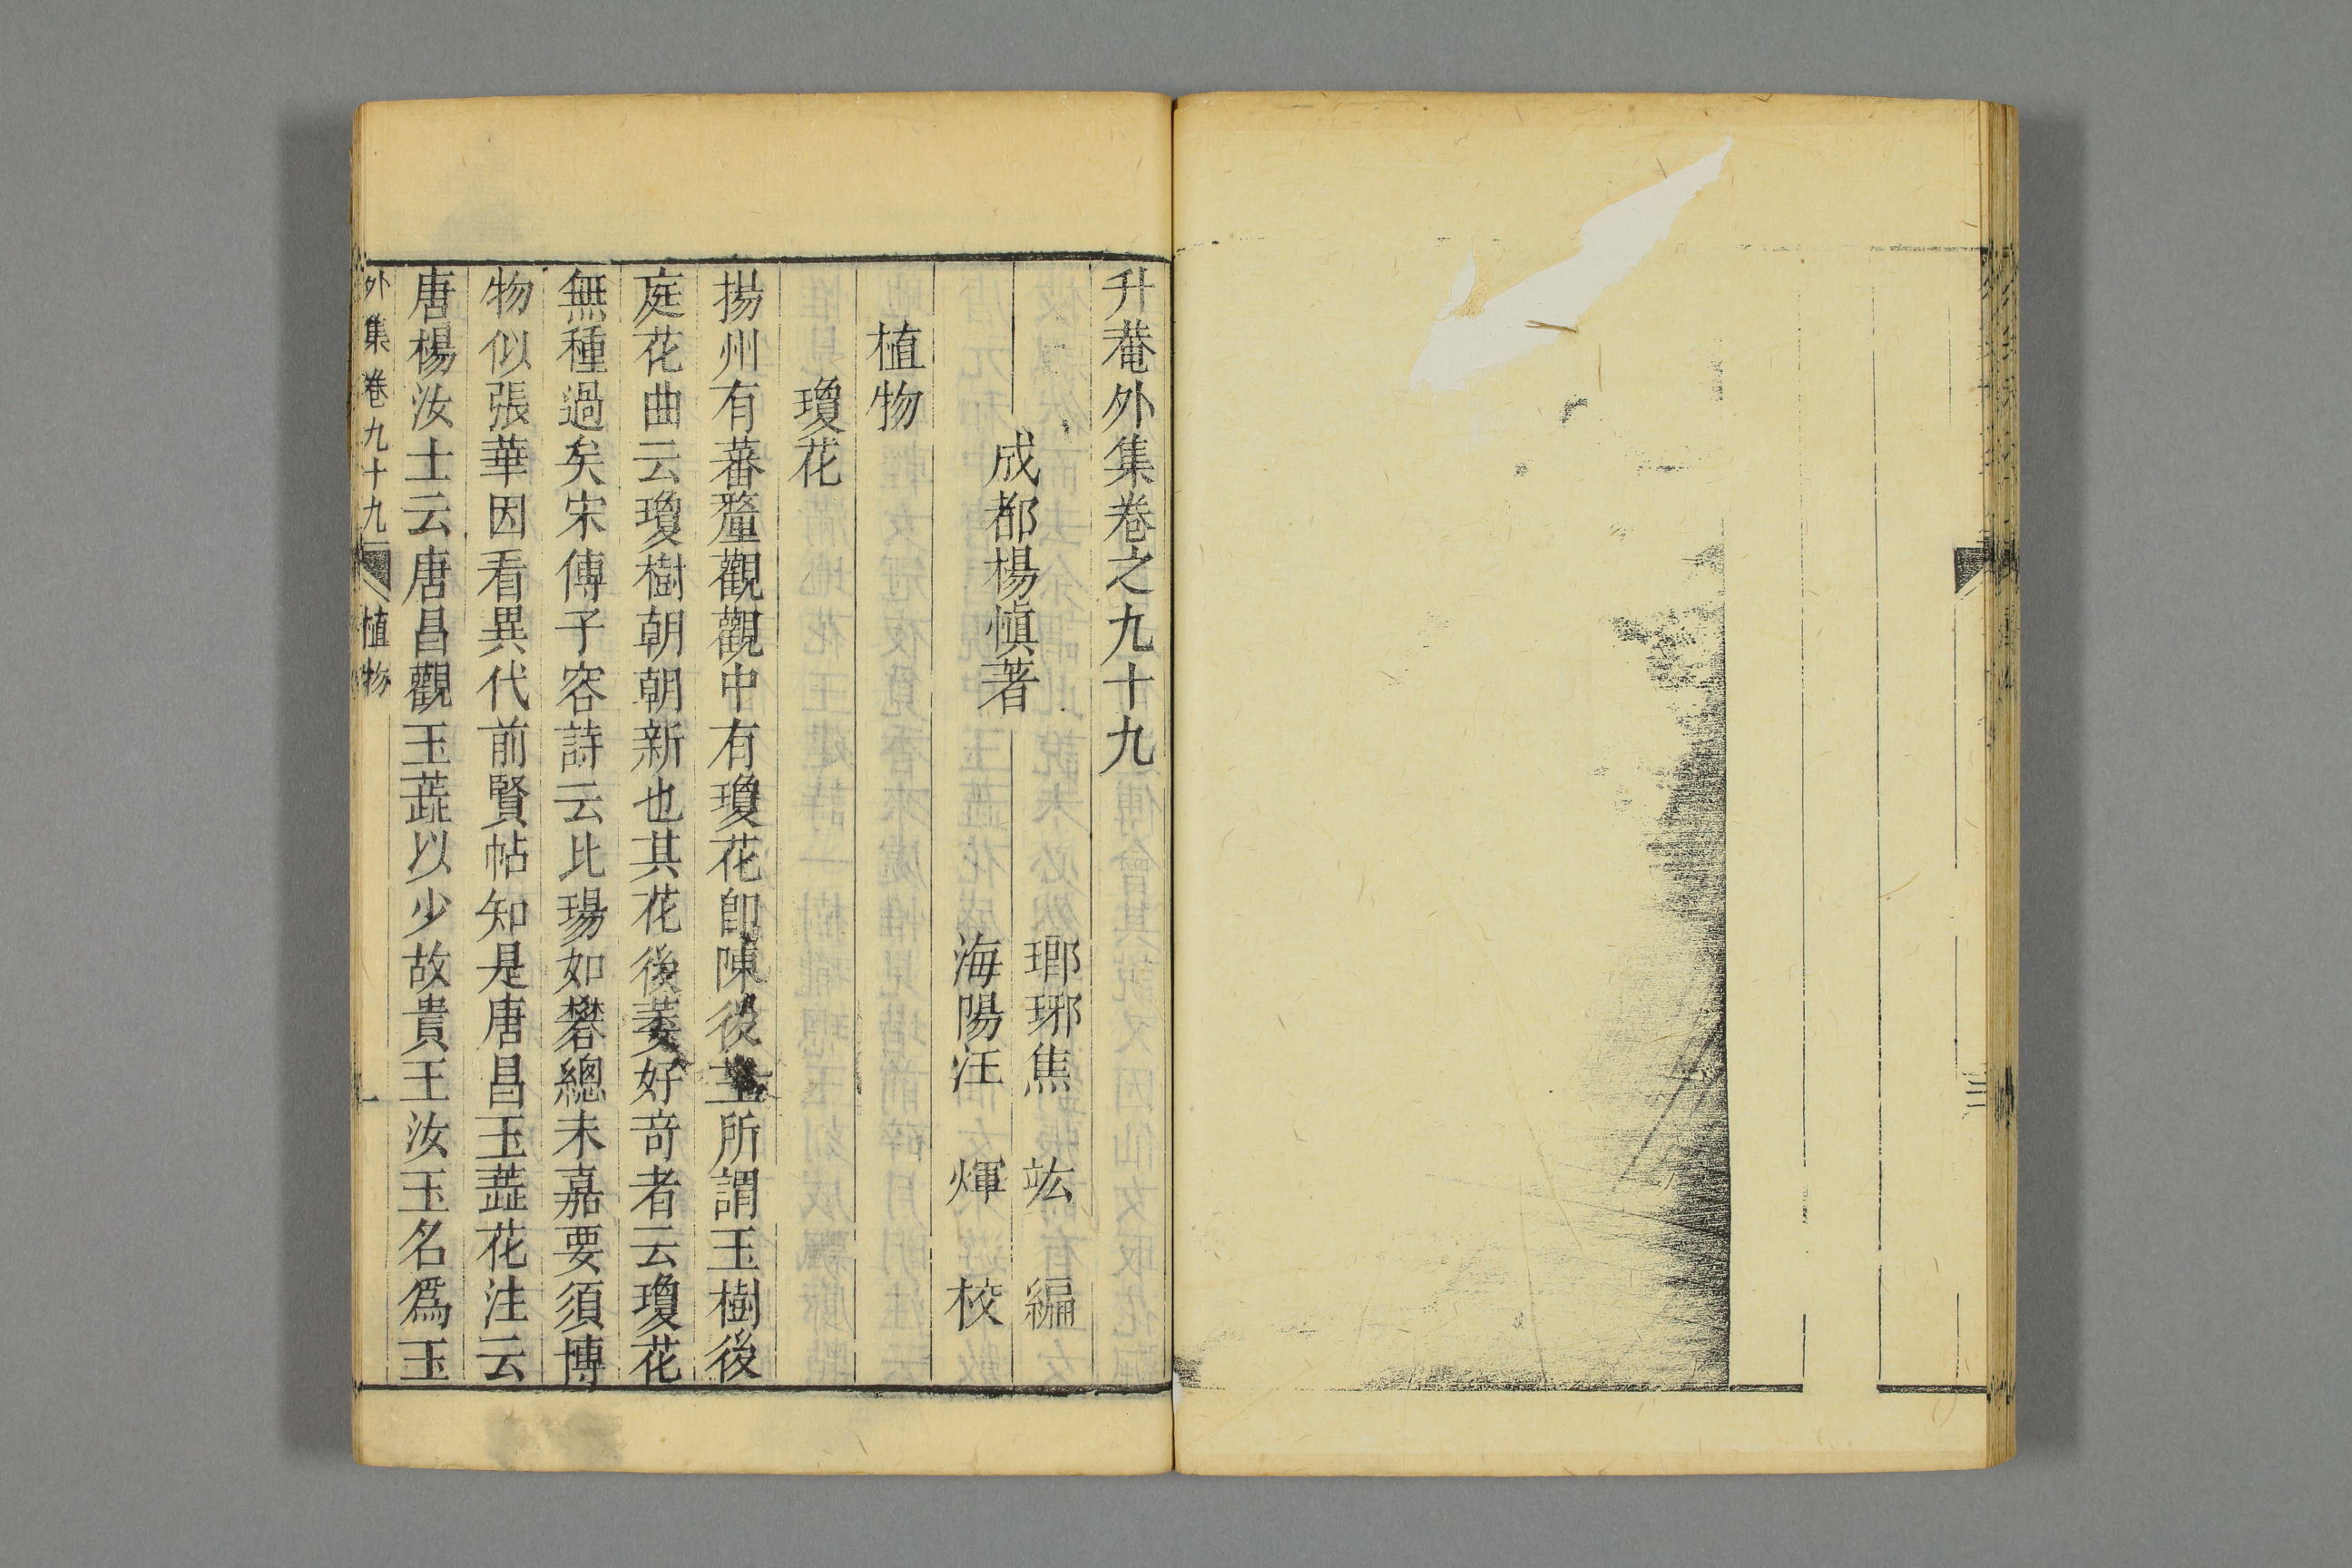 升菴外集卷之九十九
成都楊慎著
瑯琊焦竑編
海陽汪煇校
植物
瓊花
揚州有蕃釐觀觀中有瓊花卽陳後主所謂玉樹後
庭花曲云瓊樹朝朝新也其花後萎好奇者云瓊花
無種過矣宋傅子容詩云比瑒如礬總未嘉要須博
物似張華因看異代前賢帖知是唐昌玉蘂花洼云
唐楊汝士云唐昌觀玉蘂以少故貴王汝玉名爲玉
外集卷九十九
植物
一